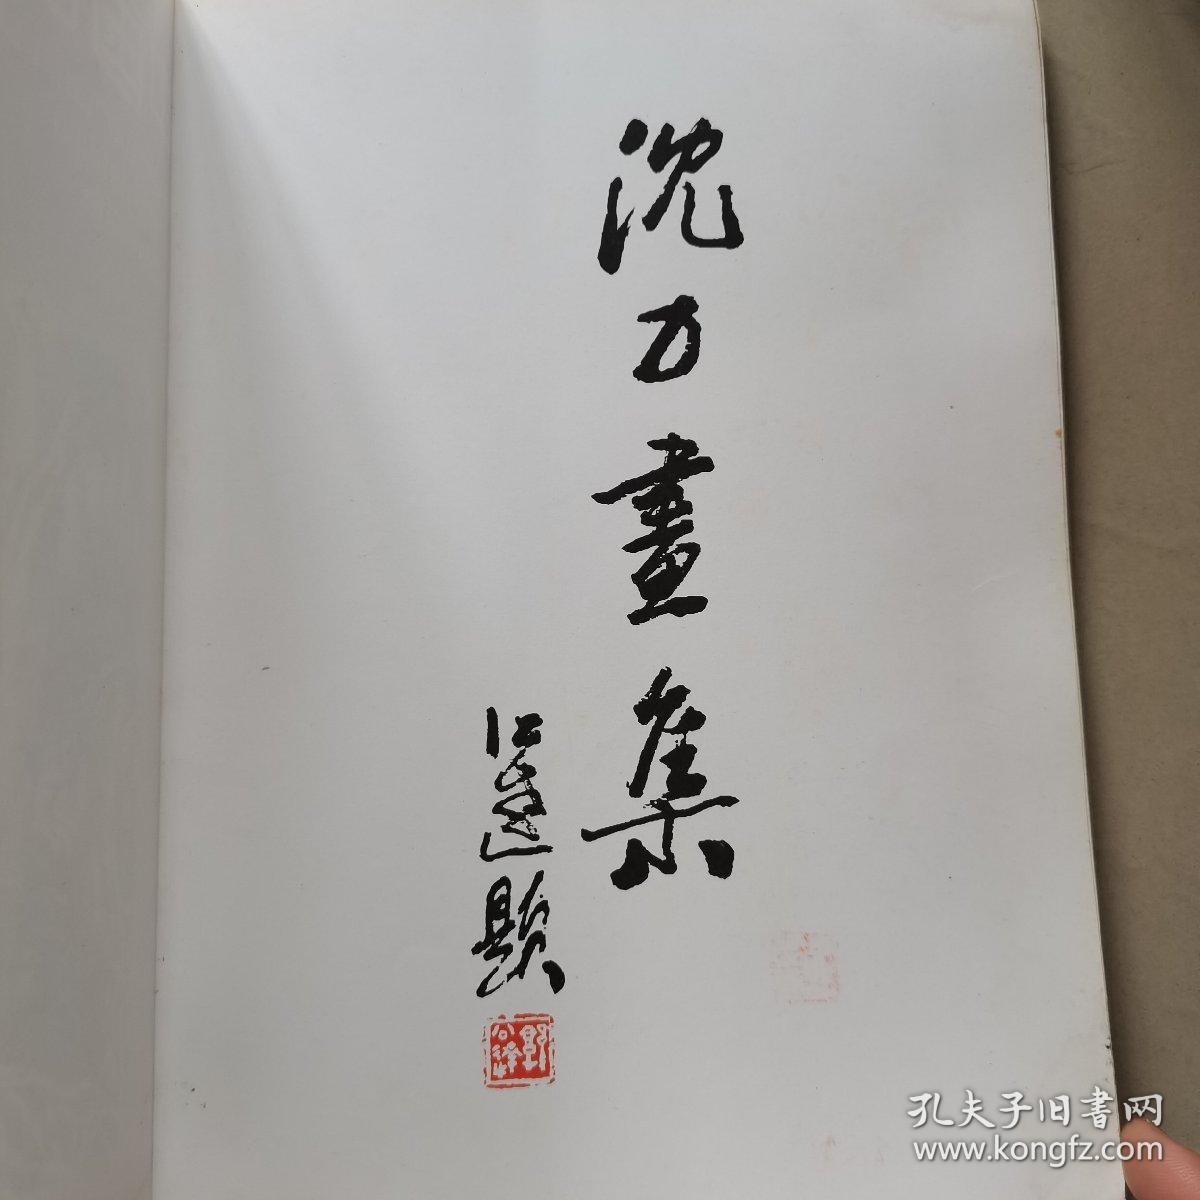 沈力畫集
題
孔夫子旧書网
www.kongfz.com